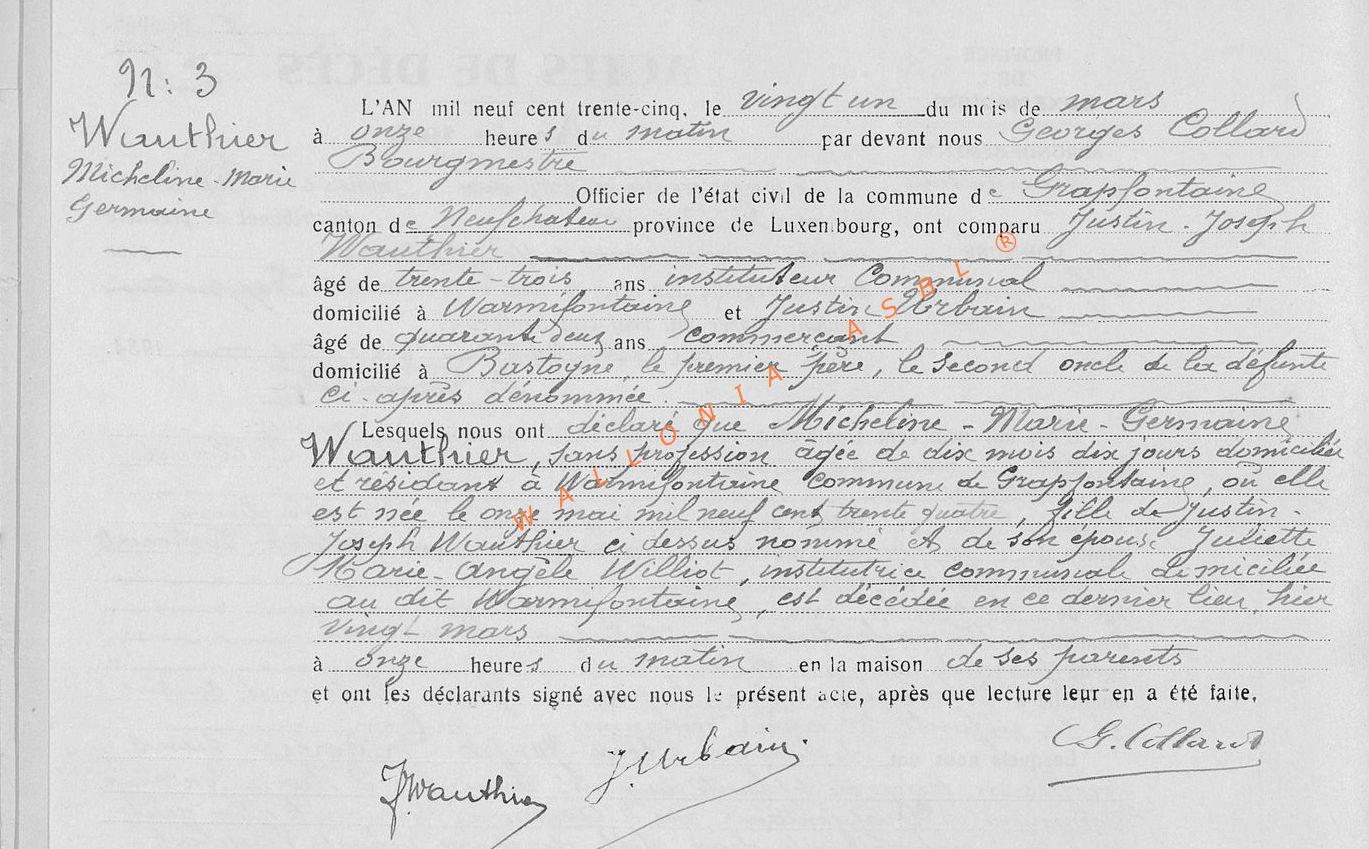 N: 3
Wauthier
Micheline-Marie
Germaine
L'AN mil neuf cent trente-cinq, le vingt un du mois de mars
à onze heures du matin par devant nous Georges Collard
Bourgmestre
Officier de l'état civil de la commune de Grapfontaine
canton de Neufchateau province de Luxembourg, ont comparu Justin-Joseph
Wauthier
âgé de trente-trois ans instituteur communal
domicilié à Warmifontaine et Justin Urbain
âgé de quarante deux ans commerçant
domicilié à Bastogne, le premier père, le second oncle de la défunte
ci-après dénommée.
Lesquels nous ont déclaré que Micheline-Marie-Germaine
Wauthier, sans profession âgée de dix mois dix jours domiciliée
et résidant à Warmifontaine commune de Grapfontaine, où elle
est née le onze mai mil neuf cent trente quatre, fille de Justin-
Joseph Wauthier ci dessus nommé et de son épouse Juliette
Marie-Angèle Williot, institutrice communale domiciliée
au dit Warmifontaine, est décédée en ce dernier lieu, hier
vingt mars
à onze heures du matin en la maison de ses parents
et ont les déclarants signé avec nous le présent acte, après que lecture leur en a été faite.
J Wauthier
J. Urbain.
G. Collard
WALLONIA ASBL ®